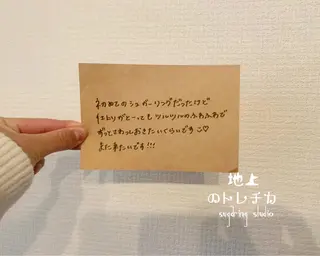 初めてのシュガーリングだったけど
仕上りがとってもツルツルのふわふわで
ずっとさわっておきたいくらいです♡
また来たいです!!!
地上
のトレチカ
sugaring studio